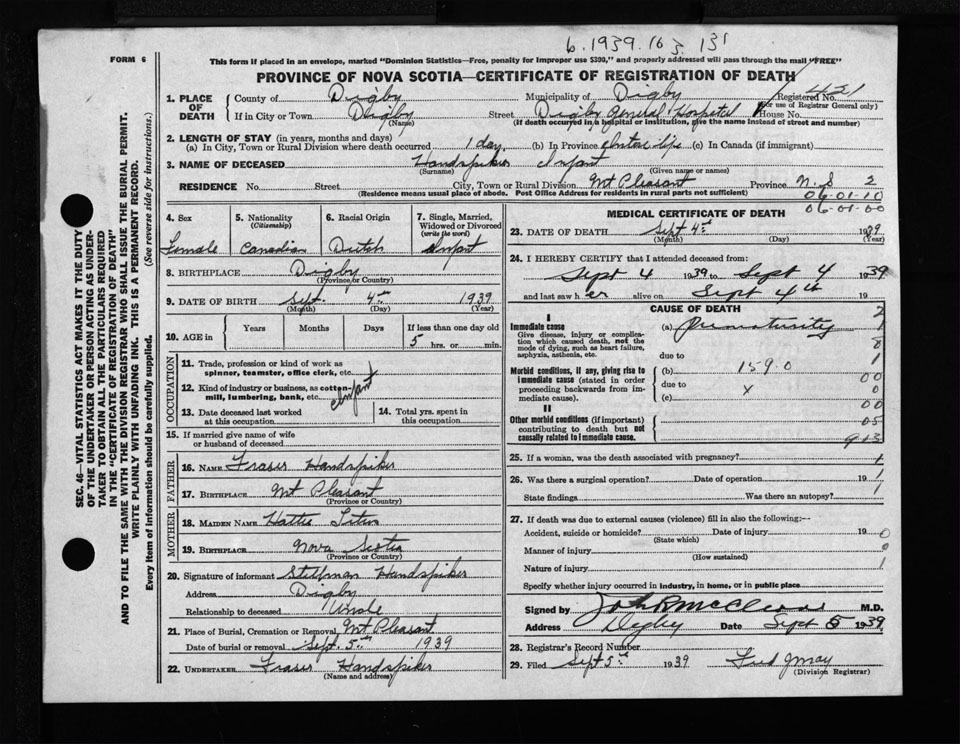 b. 1939. 163. 131
FORM 6
This form if placed in an envelope, marked "Dominion Statistics—Free, penalty for improper use $300," and properly addressed will pass through the mail "FREE"
PROVINCE OF NOVA SCOTIA—CERTIFICATE OF REGISTRATION OF DEATH
1. PLACE OF DEATH
County of Digby Municipality of Digby Registered No. 421
(For use of Registrar General only)
If in City or Town Digby (Name) Street Digby General Hospital House No.
(If death occurred in a hospital or institution, give the name instead of street and number)
2. LENGTH OF STAY (in years, months and days)
(a) In City, Town or Rural Division where death occurred 1 day. (b) In Province Entire life (c) In Canada (if immigrant)
3. NAME OF DECEASED Handspiker Infant
(Surname) (Given name or names)
RESIDENCE No. Street City, Town or Rural Division Mt Pleasant Province N. S 2
(Residence means usual place of abode. Post Office Address for residents in rural parts not sufficient)
06-01-10
06-01-00
4. Sex Female
5. Nationality (Citizenship) Canadian
6. Racial Origin Dutch
7. Single, Married, Widowed or Divorced (write the word) Infant
8. BIRTHPLACE Digby
(Province or Country)
9. DATE OF BIRTH Sept. 4th 1939
(Month) (Day) (Year)
10. AGE in Years Months Days If less than one day old
5 hrs. or min.
OCCUPATION
11. Trade, profession or kind of work as spinner, teamster, office clerk, etc.
12. Kind of industry or business, as cotton-mill, lumbering, bank, etc. Infant
13. Date deceased last worked at this occupation
14. Total yrs. spent in this occupation
15. If married give name of wife or husband of deceased
FATHER
16. NAME Fraser Handspiker
17. BIRTHPLACE Mt Pleasant
(Province or Country)
MOTHER
18. MAIDEN NAME Hattie
19. BIRTHPLACE Nova Scotia
(Province or Country)
20. Signature of informant Stillman Handspiker
Address Digby
Relationship to deceased Uncle
21. Place of Burial, Cremation or Removal Mt Pleasant
Date of burial or removal Sept. 5th 1939
22. UNDERTAKER Fraser Handspiker
(Name and address)
MEDICAL CERTIFICATE OF DEATH
23. DATE OF DEATH Sept 4th 1939
(Month) (Day) (Year)
24. I HEREBY CERTIFY that I attended deceased from:
Sept 4 1939 to Sept 4 1939
and last saw her alive on Sept 4th 19
CAUSE OF DEATH
I
Immediate cause
Give disease, injury or complication which caused death, not the mode of dying, such as heart failure, asphyxia, asthenia, etc.
(a) Prematurity
due to
Morbid conditions, if any, giving rise to immediate cause (stated in order proceeding backwards from immediate cause).
(b) 159.0
due to x
(c)
II
Other morbid conditions (if important) contributing to death but not causally related to immediate cause.
2
1
8
1
00
0
00
05
913
25. If a woman, was the death associated with pregnancy? 1
26. Was there a surgical operation? Date of operation 19 1
State findings Was there an autopsy? 1
27. If death was due to external causes (violence) fill in also the following:—
Accident, suicide or homicide? Date of injury 19 0
(State which)
Manner of injury 0
(How sustained)
Nature of injury 1
Specify whether injury occurred in industry, in home, or in public place
Signed by M.D.
Address Digby Date Sept 5 1939
28. Registrar's Record Number
29. Filed Sept 5th 1939 Fred J May
(Division Registrar)
SEC. 46—VITAL STATISTICS ACT MAKES IT THE DUTY
OF THE UNDERTAKER OR PERSON ACTING AS UNDER-
TAKER TO OBTAIN ALL THE PARTICULARS REQUIRED
IN THE "CERTIFICATE OF REGISTRATION OF DEATH"
AND TO FILE THE SAME WITH THE DIVISION REGISTRAR WHO SHALL ISSUE THE BURIAL PERMIT.
WRITE PLAINLY WITH UNFADING INK. THIS IS A PERMANENT RECORD.
Every item of information should be carefully supplied. (See reverse side for instructions.)